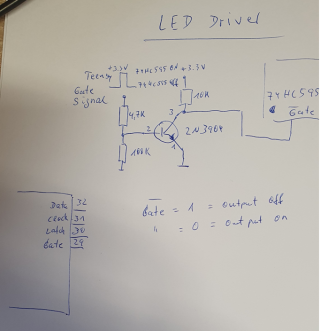 LED Driver
+3.3V
74HC595 EN
+3.3V
Teensy
74HC595 Off
Gate
Signal
10K
74HC595
Gate
4,7K
3
2
2N3904
1
100K
Data 32
Clock 31
Latch 30
Gate 29
Gate = 1 = output off
" = 0 = output on